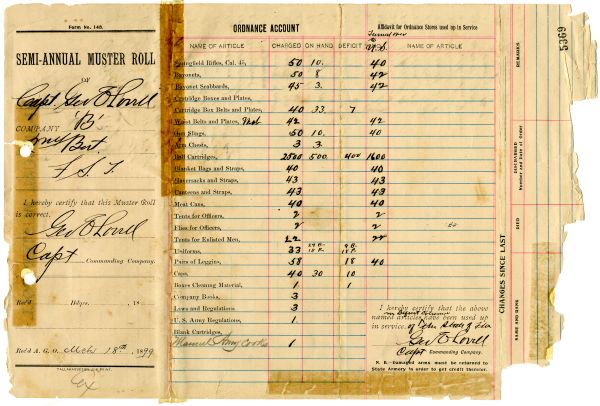 Form No. 148.
SEMI-ANNUAL MUSTER ROLL
OF
Capt Geo E Lovell
COMPANY 'B'
Batt
F. S. T.
I hereby certify that this Muster Roll
is correct.
Geo E Lovell
Capt Commanding Company.
Rec'd Hdqrs. , 18
Rec'd A. G. O. Mch 18th, 1899
ORDNANCE ACCOUNT
Affidavit for Ordnance Stores used up in Service
NAME OF ARTICLE CHARGED ON HAND DEFICIT NAME OF ARTICLE
Springfield Rifles, Cal. 45, 50 10. 40
Bayonets, 50 8 42
Bayonet Scabbards, 45 3. 42
Cartridge Boxes and Plates,
Cartridge Box Belts and Plates, 40 33. 7
Waist Belts and Plates, 42 42
Gun Slings, 50 10. 40
Arm Chests, 3 3.
Ball Cartridges, 2500 500. 400 1600
Blanket Bags and Straps, 40 40
Haversacks and Straps, 43 43
Canteens and Straps, 43 43
Meat Cans, 40 40
Tents for Officers, 2 2
Flies for Officers, 2 2
Tents for Enlisted Men, 22 22
Uniforms, 33
Pairs of Leggins, 58 18 40
Caps, 40 30 10
Boxes Cleaning Material, 1 1
Company Books, 3
Laws and Regulations 3
U. S. Army Regulations, 1
Blank Cartridges,
Manuel Army Cooks 1
I hereby certify that the above
named articles have been used up
in service of the State of Fla
Geo E Lovell
Capt Commanding Company.
N. B.—Damaged arms must be returned to
State Armory in order to get credit therefor.
5369
REMARKS
DISCHARGED
Number and Date of Order
DIED
CHANGES SINCE LAST
NAME AND RANK